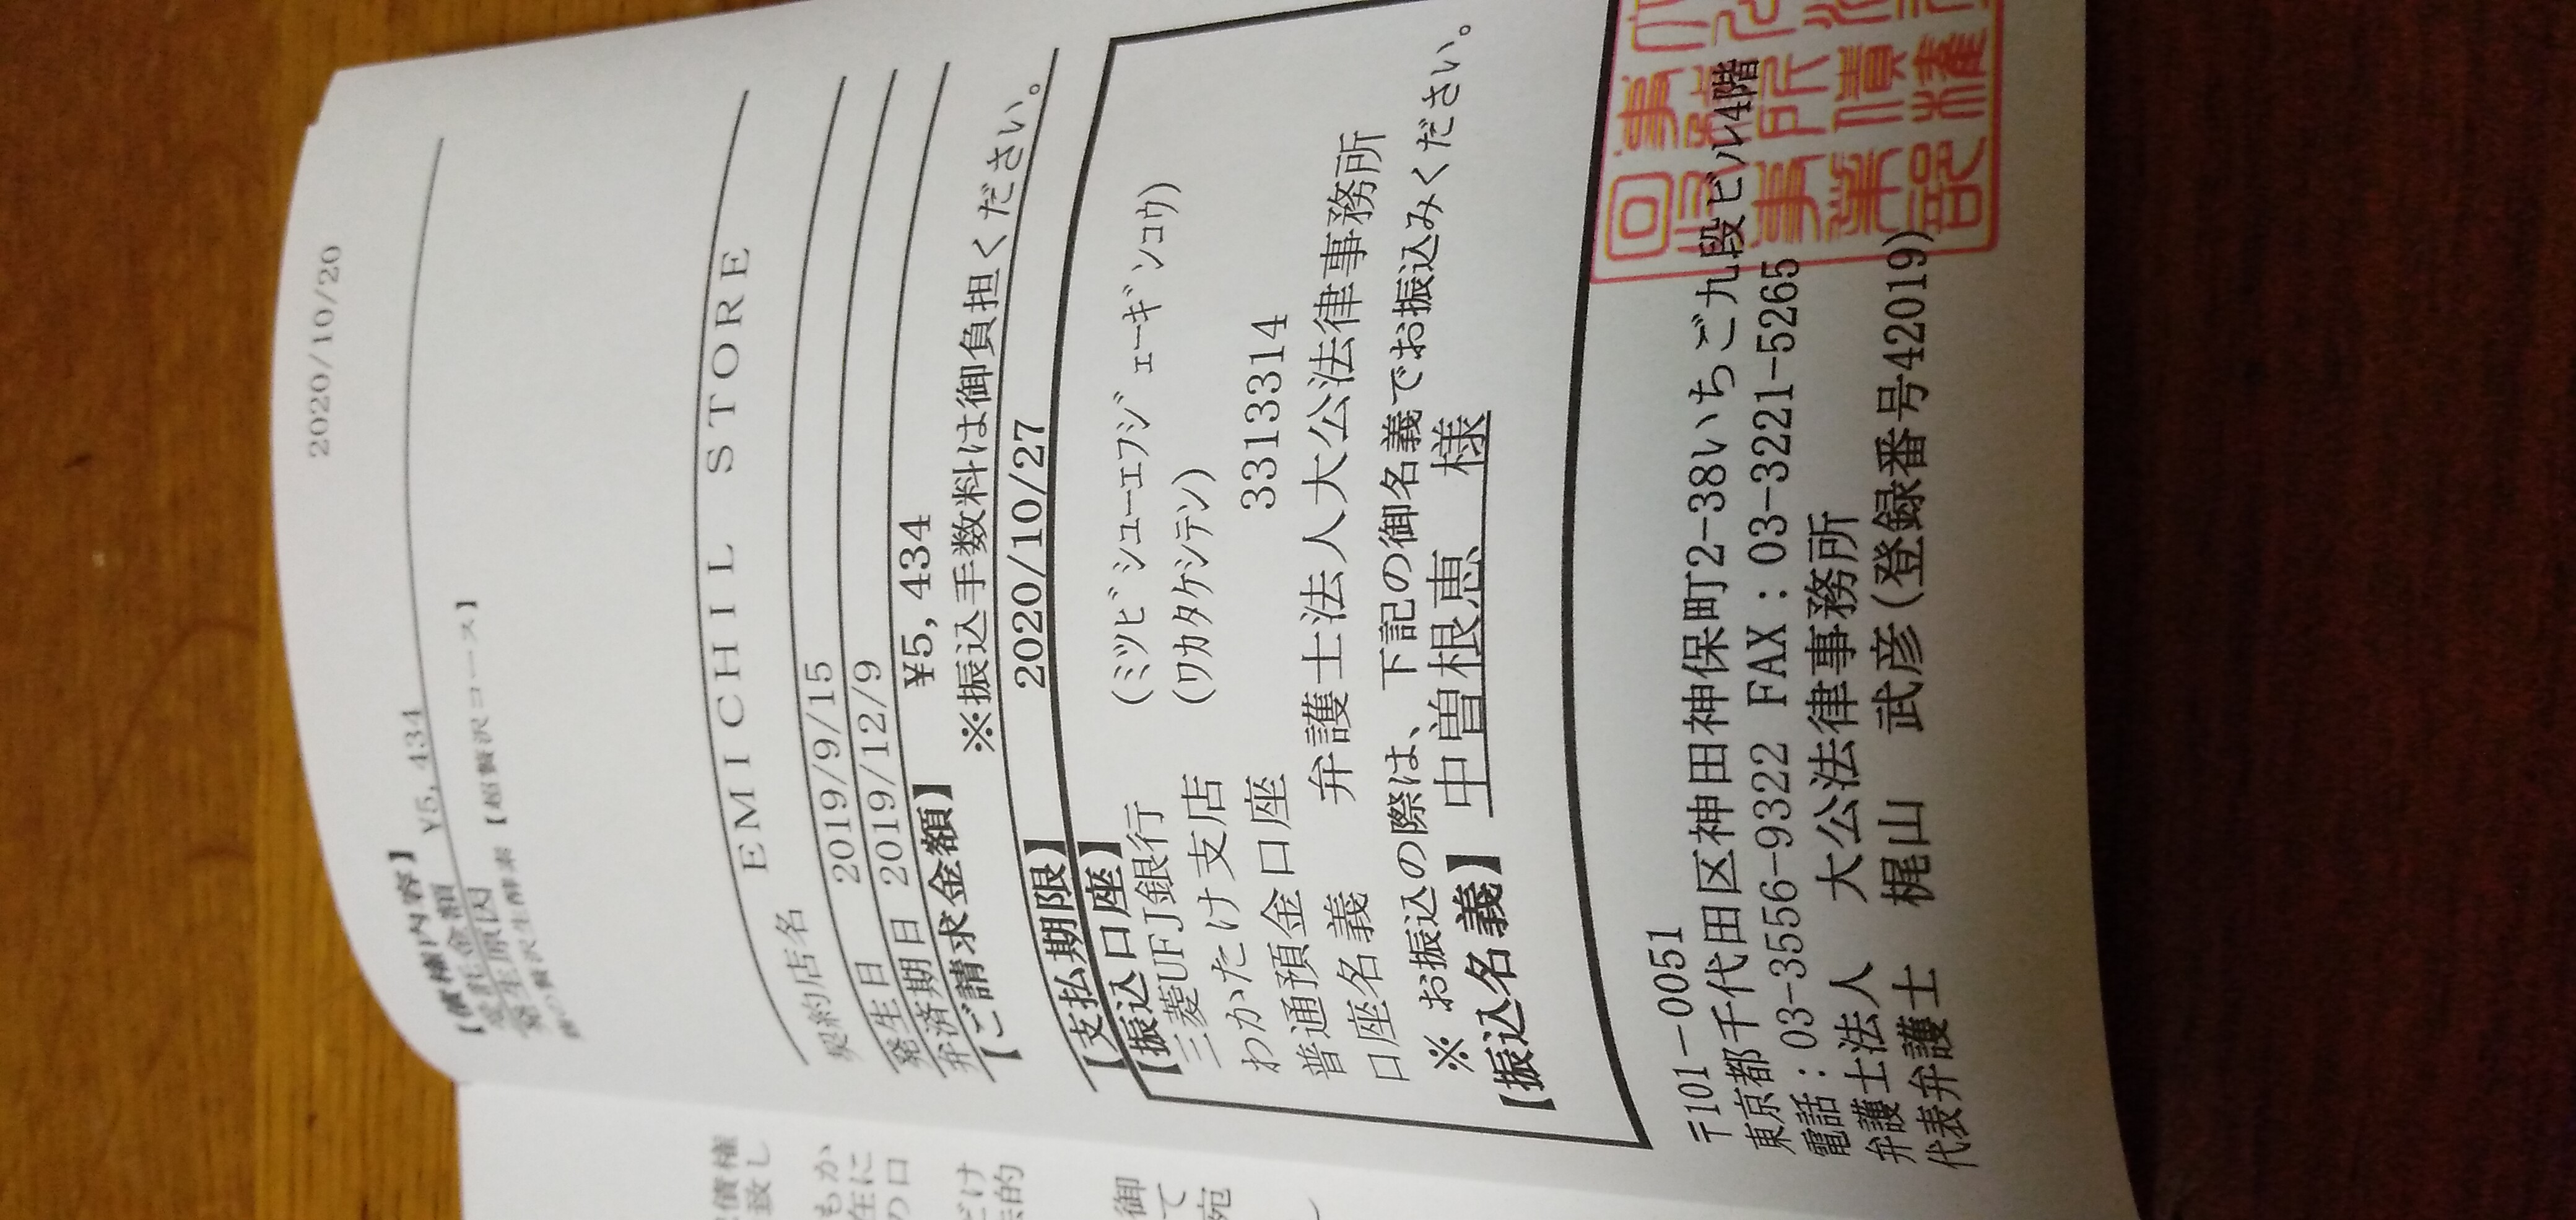 2020/10/20
【債権内容】
受託金額 ¥5,434
発生原因
【超贅沢コース】
契約店名 EMICHIL STORE
発生日 2019/9/15
弁済期日 2019/12/9
【ご請求金額】 ¥5,434
※振込手数料は御負担ください。
【支払期限】 2020/10/27
【振込口座】
三菱UFJ銀行 (ミツビシユーエフジェーギンコウ)
わかたけ支店 (ワカタケシテン)
普通預金口座 3313314
口座名義 弁護士法人大公法律事務所
※ お振込の際は、下記の御名義でお振込みください。
【振込名義】 中曽根恵 様
〒101-0051
東京都千代田区神田神保町2-38いちご九段ビル4階
電話:03-3556-9322 FAX:03-3221-5265
弁護士法人 大公法律事務所
代表弁護士 梶山 武彦(登録番号42019)
債権
致し
もか
在に
の口
だけ
法的
御
て
宛
し